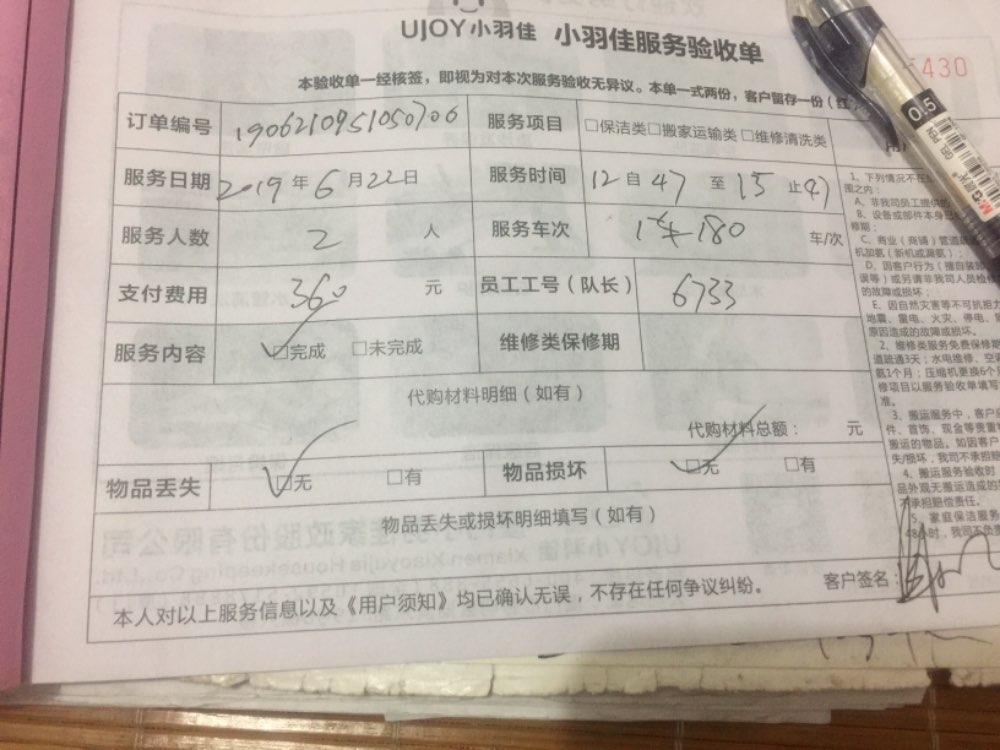 UJOY小羽佳 小羽佳服务验收单
本验收单一经核签，即视为对本次服务验收无异议。本单一式两份，客户留存一份（红
430
订单编号 1906210951050706 服务项目 □保洁类□搬家运输类□维修清洗类
服务日期 2019年6月22日 服务时间 12自47至15止47
服务人数 2 人 服务车次 1车180 车/次
支付费用 360 元 员工工号（队长） 6733
服务内容 ☑完成 □未完成 维修类保修期
代购材料明细（如有）
代购材料总额： 元
物品丢失 ☑无 □有 物品损坏 ☑无 □有
物品丢失或损坏明细填写（如有）
客户签名：
本人对以上服务信息以及《用户须知》均已确认无误，不存在任何争议纠纷。
1、下列情况不在
围之内：
A、非我司员工提供的
B、设备或部件本身
修期；
C、商业（商铺）管道
机加氨（新机或漏氨）；
D、因客户行为（擅自
误等）或另请非我司人员检
的故障或损坏；
E、因自然灾害等不可抗拒
地震、雷电、火灾、停电、
原因造成的故障或损坏。
2、维修类服务免费保修期
道疏通3天；水电维修、空
氨1个月；压缩机更换6个
修项目以服务验收单填写
准。
3、搬运服务中，客户
件、首饰、现金等贵重
搬运的物品。如因客户
失/损坏，我司不承担赔
4、搬运服务验收时
品外观无搬运造成的
不承担赔偿责任。
5、家庭保洁服务
48小时，我司不负
0.5
GEL PEN
M&G